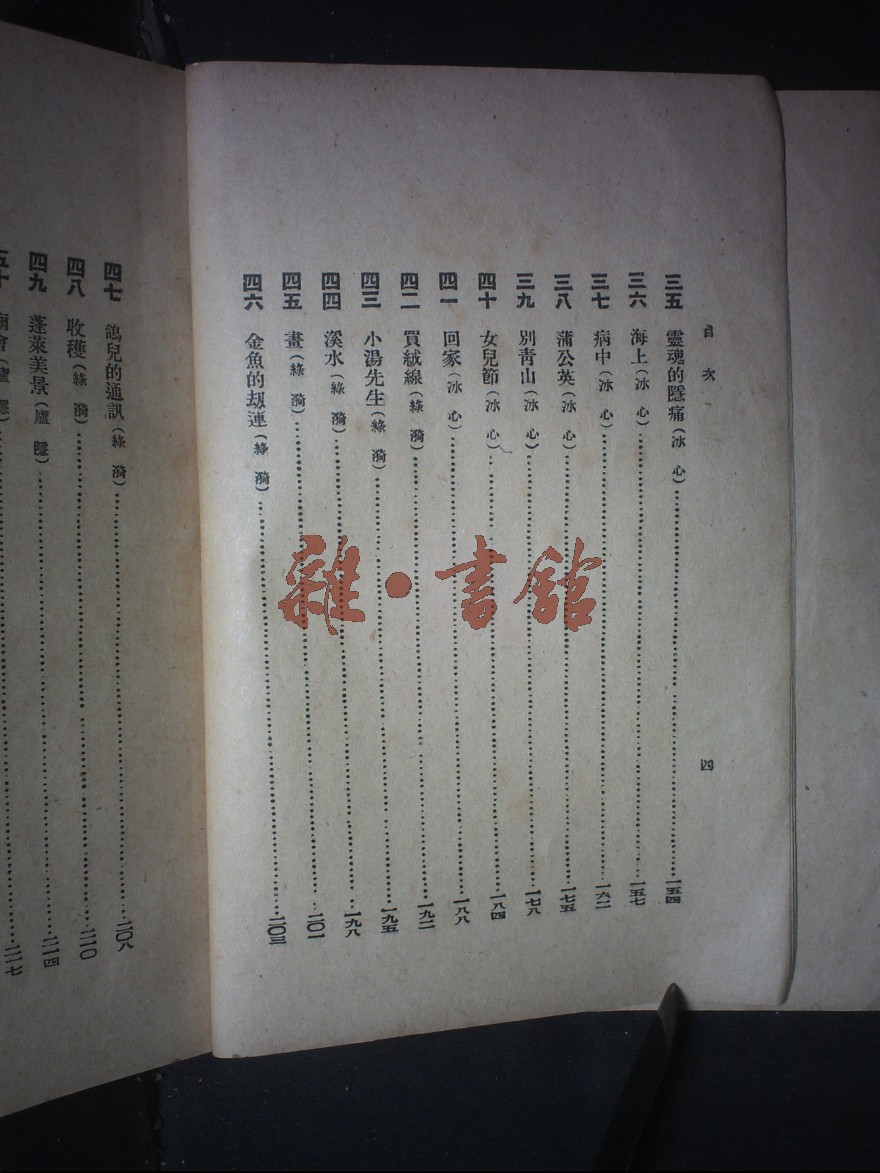 目次
四
三五 靈魂的隱痛（冰心）一五四
三六 海上（冰心）一五七
三七 病中（冰心）一六二
三八 蒲公英（冰心）一七五
三九 別青山（冰心）一七八
四十 女兒節（冰心）一八四
四一 回家（冰心）一八八
四二 買絨線（綠漪）一九二
四三 小湯先生（綠漪）一九五
四四 溪水（綠漪）一九八
四五 畫（綠漪）二〇一
四六 金魚的刧運（綠漪）二〇三
四七 鴿兒的通訊（綠漪）二〇八
四八 收穫（綠漪）二一〇
四九 蓬萊美景（廬隱）二一四
五十 廟會（廬隱）二一七
雜·書館